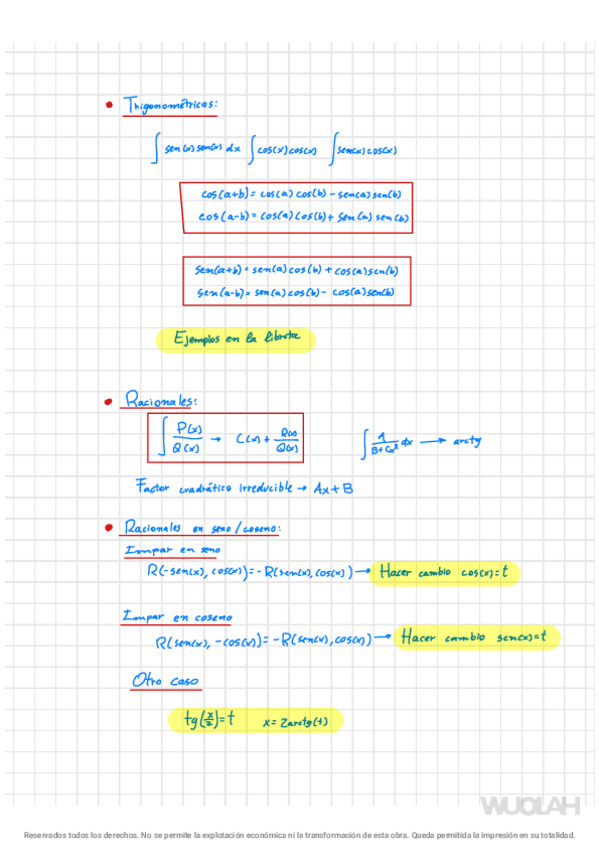 • Trigonométricas:
∫ sen(x) sen(x) dx ∫ cos(x) cos(x) ∫ sen(x) cos(x)
cos(a+b) = cos(a) cos(b) - sen(a) sen(b)
cos(a-b) = cos(a) cos(b) + sen(a) sen(b)
sen(a+b) = sen(a) cos(b) + cos(a) sen(b)
sen(a-b) = sen(a) cos(b) - cos(a) sen(b)
Ejemplos en la libreta
• Racionales:
∫ P(x)/Q(x) → C(x) + R(x)/Q(x) ∫ A/(B+Cx²) dx → arctg
Factor cuadrático irreducible → Ax+B
• Racionales en seno/coseno:
Impar en seno
R(-sen(x), cos(x)) = -R(sen(x), cos(x)) → Hacer cambio cos(x)=t
Impar en coseno
R(sen(x), -cos(x)) = -R(sen(x), cos(x)) → Hacer cambio sen(x)=t
Otro caso
tg(x/2)=t x=2arctg(t)
WUOLAH
Reservados todos los derechos. No se permite la explotación económica ni la transformación de esta obra. Queda permitida la impresión en su totalidad.